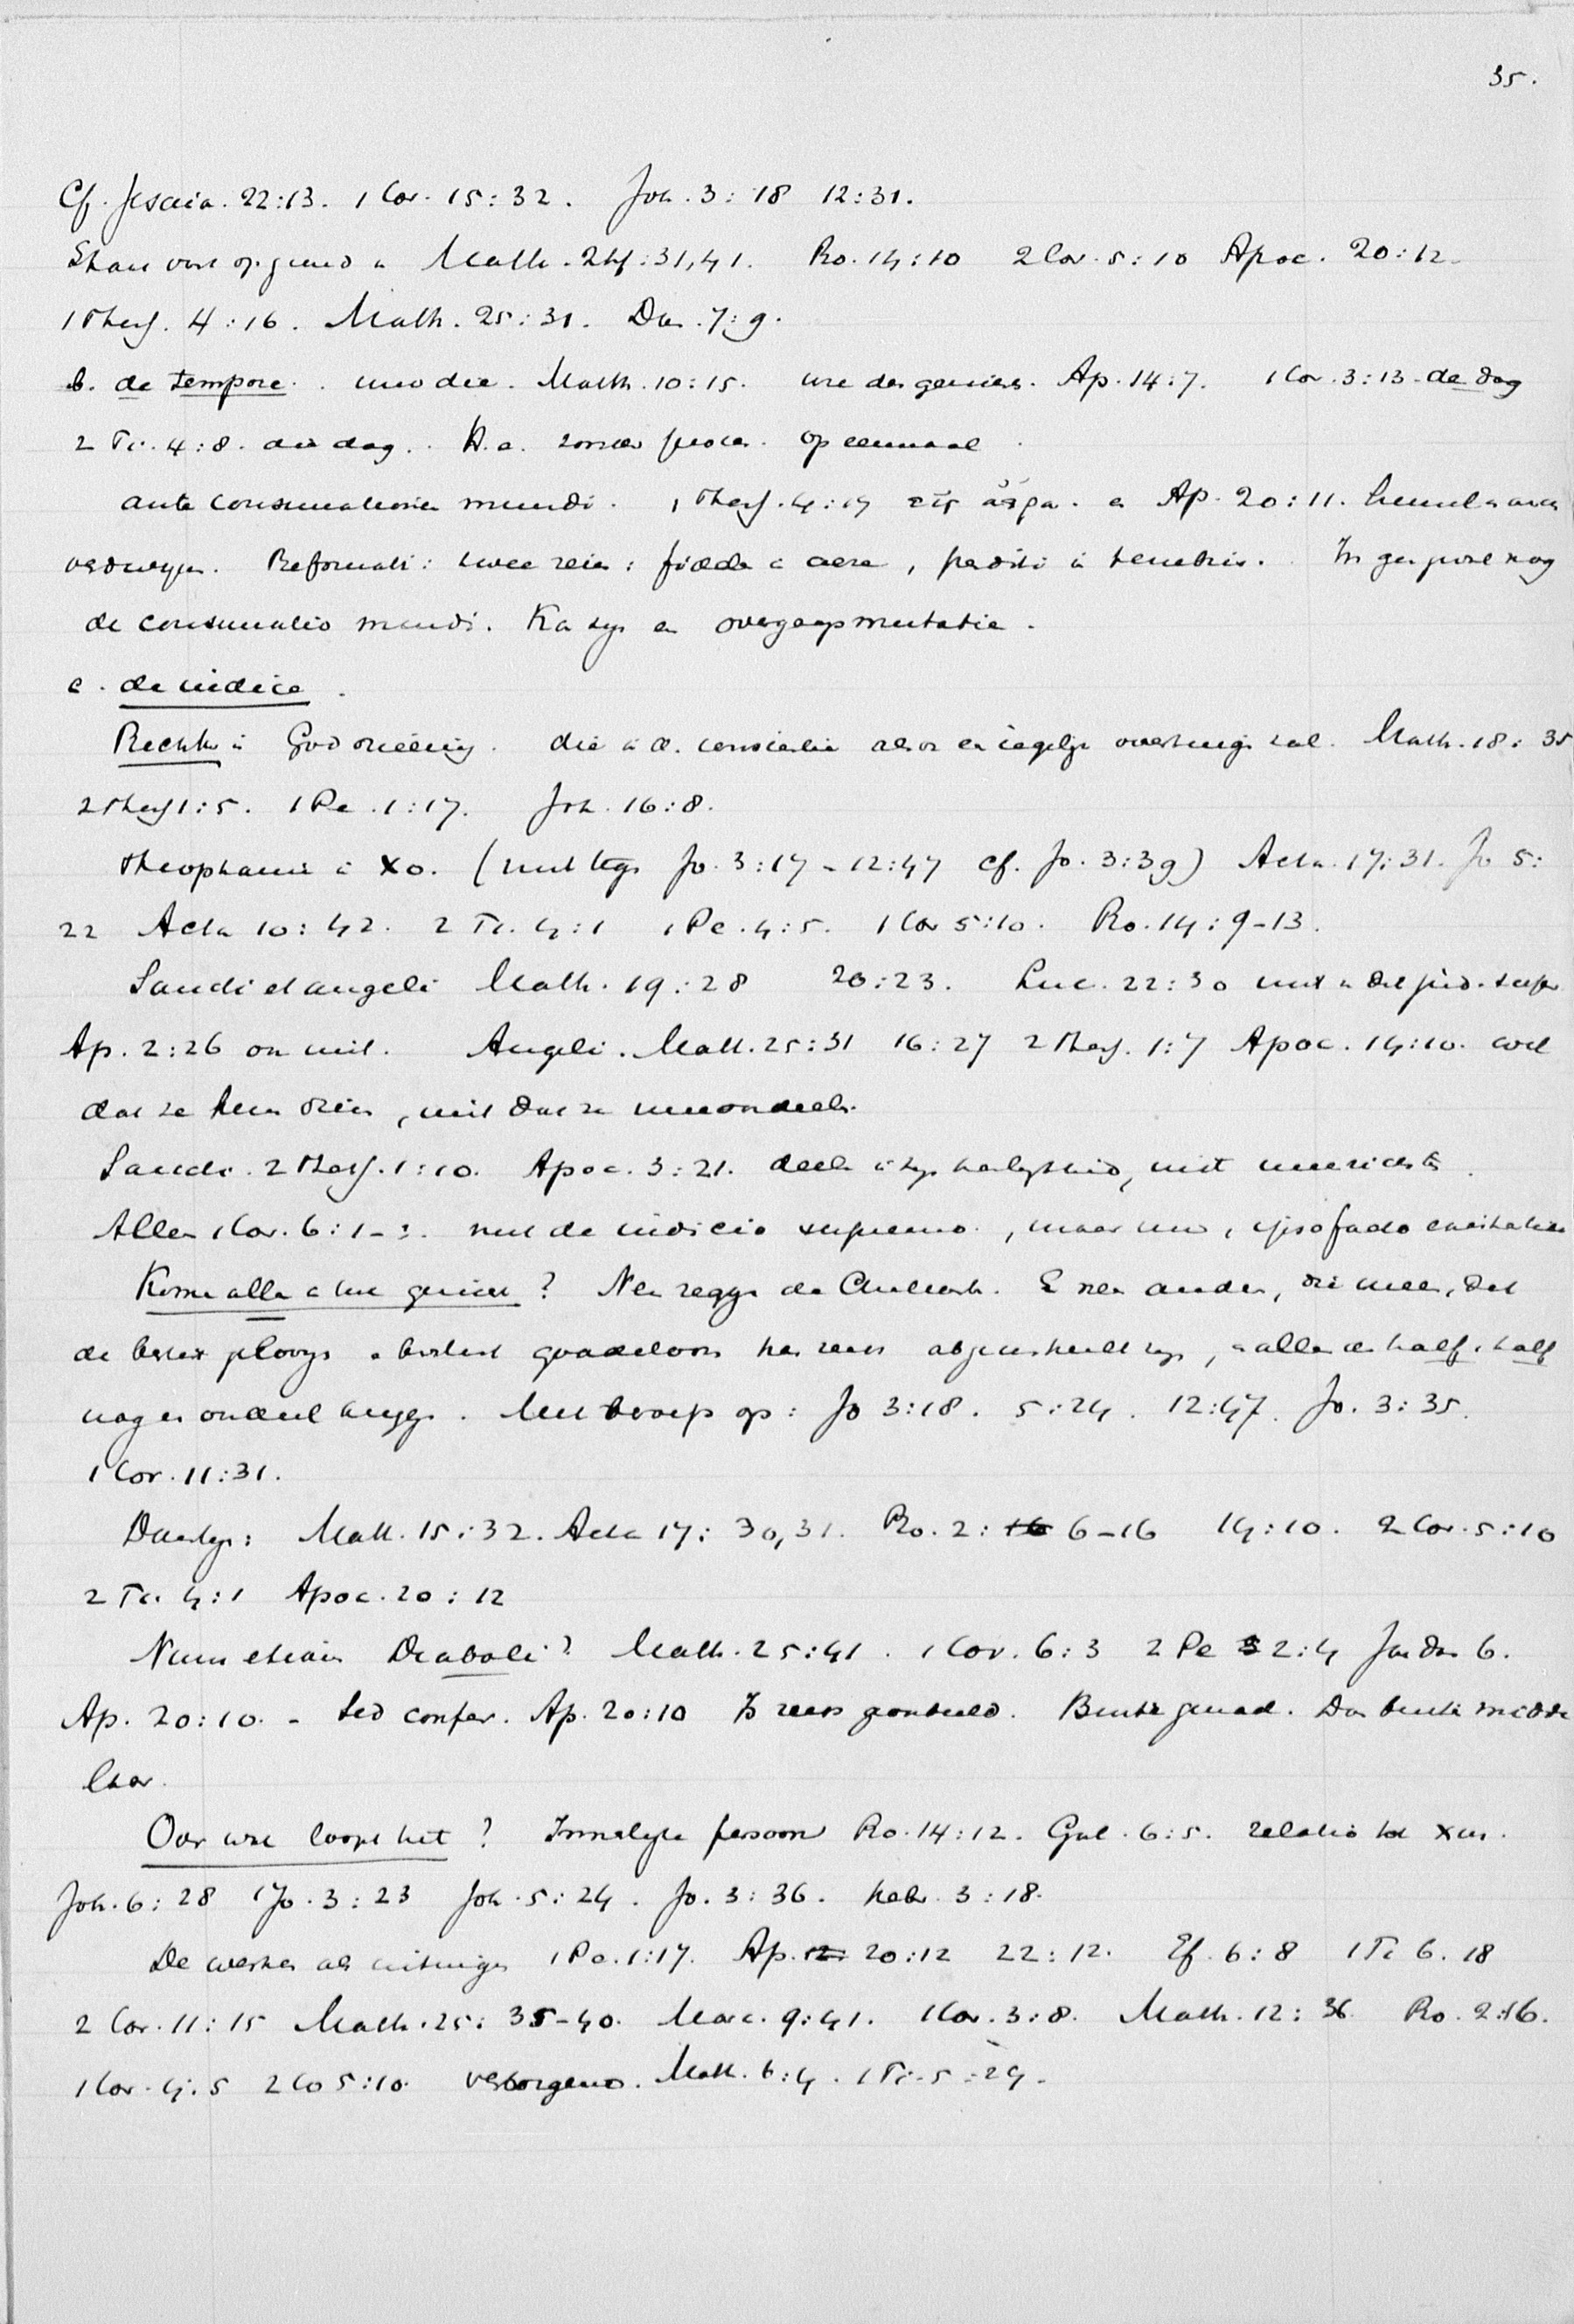 35.
Cf. Jesaia. 22:13. 1 Cor. 15:32. Joh. 3:18 12:31.
Staat vast op grond v Math. 24:31,41. Ro. 14:10 2 Cor. 5:10 Apoc. 20:12.
1 Thess. 4:16. Math. 25:31. Da. 7:9.
b. de tempore. uno die. Math. 10:15. ure des gerichts. Ap. 14:7. 1 Cor. 3:13. de dag
2 Ti. 4:8. die dag. D.i. zonder proces. op eenmaal
ante consummationem mundi. 1 Thess. 4:17 εἰς ἀέρα. en Ap. 20:11. hemel en aarde
verdwijnen. Reformati: twee reien: fideles in aere, perditi in tenebris. In gespare nog
de consummatio mundi. Ka zijn en overgangsmutatie.
c. de iudice.
Rechter is God drieëenig. die in d. conscientie als in iegelijk overtuigen zal. Math. 18:35
2 Thess 1:5. 1 Pe. 1:17. Joh. 16:8.
Theophanie in Xo. (niet tegen Jo. 3:17 - 12:47 cf. Jo. 3:39) Acta. 17:31. Jo 5:
22 Acta 10:42. 2 Ti. 4:1 1 Pe. 4:5. 1 Cor 5:10. Ro. 14:9-13.
Sancti et angeli Math. 19:28 20:23. Luc. 22:30 niet
Ap. 2:26 ook niet. Angeli. Math. 25:31 16:27 2 Thess. 1:7 Apoc. 14:10. wel
dat ze hem dienen, niet dat ze meeoordeelen.
Sancti. 2 Thess. 1:10. Apoc. 3:21. deelen in zijn heerlijkheid, niet meerichten.
Alleen 1 Cor. 6:1-3. niet de iudicio supremo, maar nu, ipso facto
Komen allen in het gericht? Neen zeggen de Chiliasten. En neen anderen, die meenen, dat
de besten ploorgs en beslist goddeloozen hier reeds afgeoordeeld zijn, en alleen de half en half
nog en oordeel krijgen. Met beroep op: Jo 3:18. 5:24. 12:47. Jo. 3:35.
1 Cor. 11:31.
Daartegen: Math. 15:32. Acta 17:30,31. Ro. 2: 6-16 14:10. 2 Cor. 5:10
2 Ti. 4:1 Apoc. 20:12
Num etiam Diaboli? Math. 25:41. 1 Cor. 6:3 2 Pe 2:4 Judas 6.
Ap. 20:10. - Sed confer. Ap. 20:10 Is reeds geoordeeld. Buiten genade. Dus buiten midde
laar.
Over wie loopt het? Innerlijke persoon Ro. 14:12. Gal. 6:5. relatio tot Xus.
Joh. 6:28 1 Jo. 3:23 Joh. 5:24. Jo. 3:36. hebr. 3:18.
De werken als uitingen 1 Pe. 1:17. Ap. 20:12 22:12. Ef. 6:8 1 Ti 6.18
2 Cor. 11:15 Math. 25:35-40. Marc. 9:41. 1 Cor. 3:8. Math. 12:36 Ro. 2:16.
1 Cor. 4:5 2 Co 5:10. verborgene. Math. 6:4. 1 Ti. 5:24.